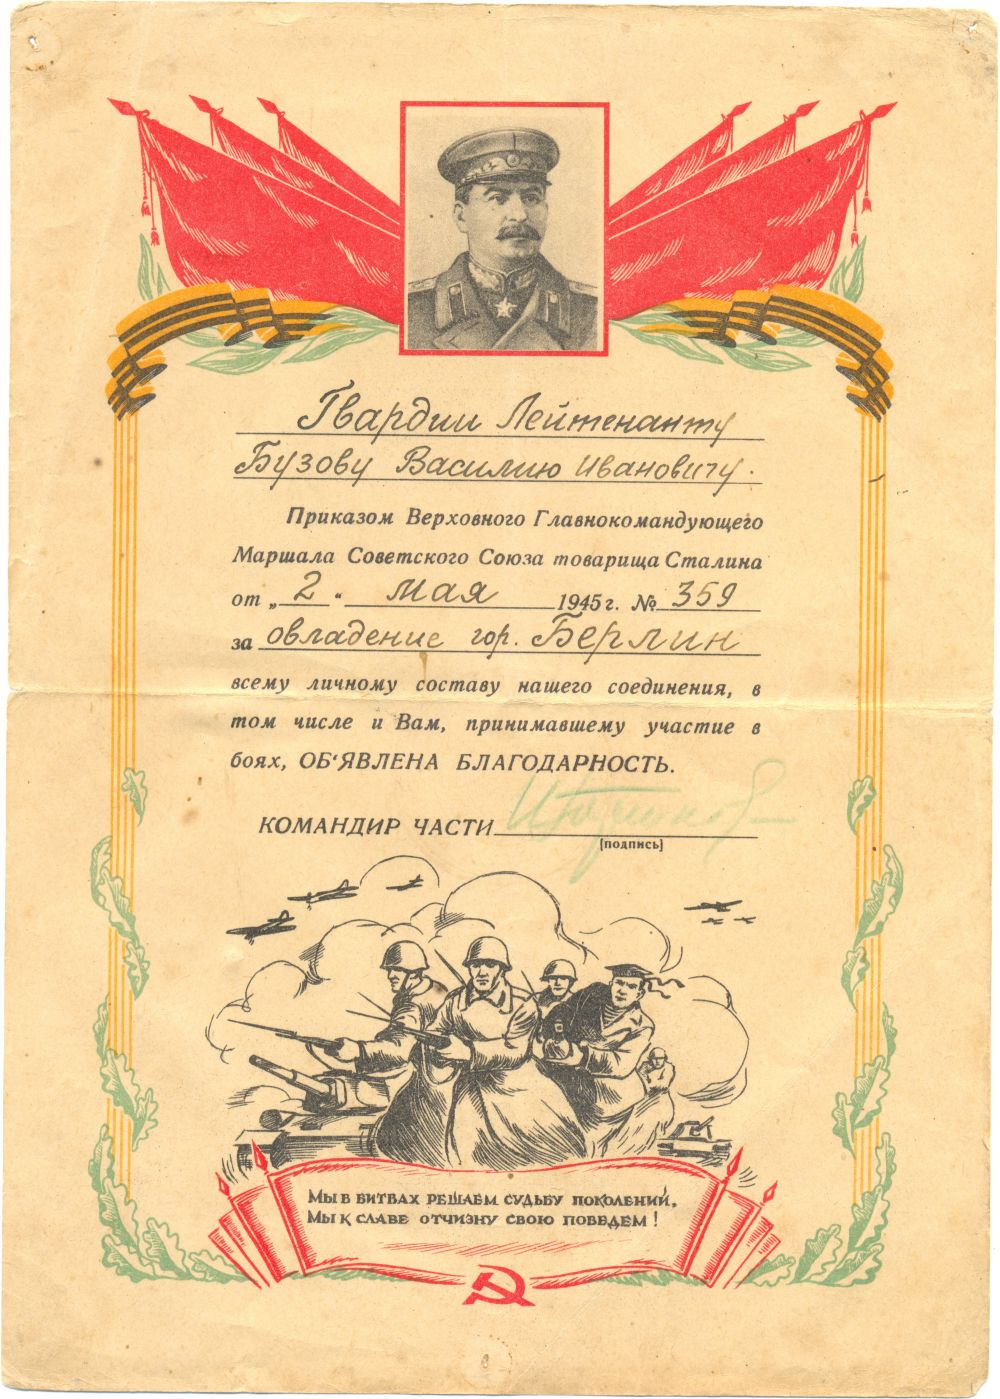 Гвардии Лейтенанту
Бузову Василию Ивановичу.
Приказом Верховного Главнокомандующего
Маршала Советского Союза товарища Сталина
от „2“ мая 1945 г. № 359
за овладение гор. Берлин
всему личному составу нашего соединения, в
том числе и Вам, принимавшему участие в
боях, ОБ'ЯВЛЕНА БЛАГОДАРНОСТЬ.
КОМАНДИР ЧАСТИ
[подпись]
Мы в битвах решаем судьбу поколений,
Мы к славе отчизну свою поведем!